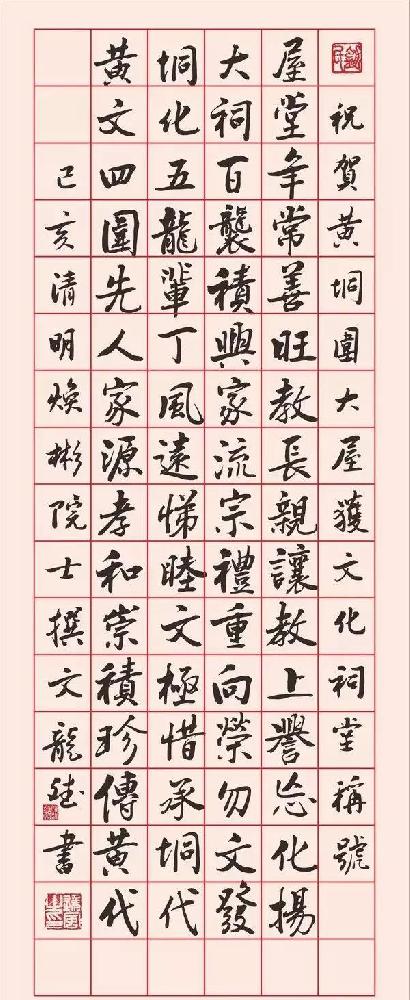 祝賀黄垌圍大屋獲文化祠堂稱號
黄垌大屋
文化祠堂
四五百年
圍龍襲常
先輩積善
人丁興旺
家風家教
源遠流長
孝悌宗親
和睦禮讓
崇文重教
積極向上
珍惜榮譽
傳承勿忘
黄垌文化
代代發揚
己亥清明煥彬院士撰文龍書